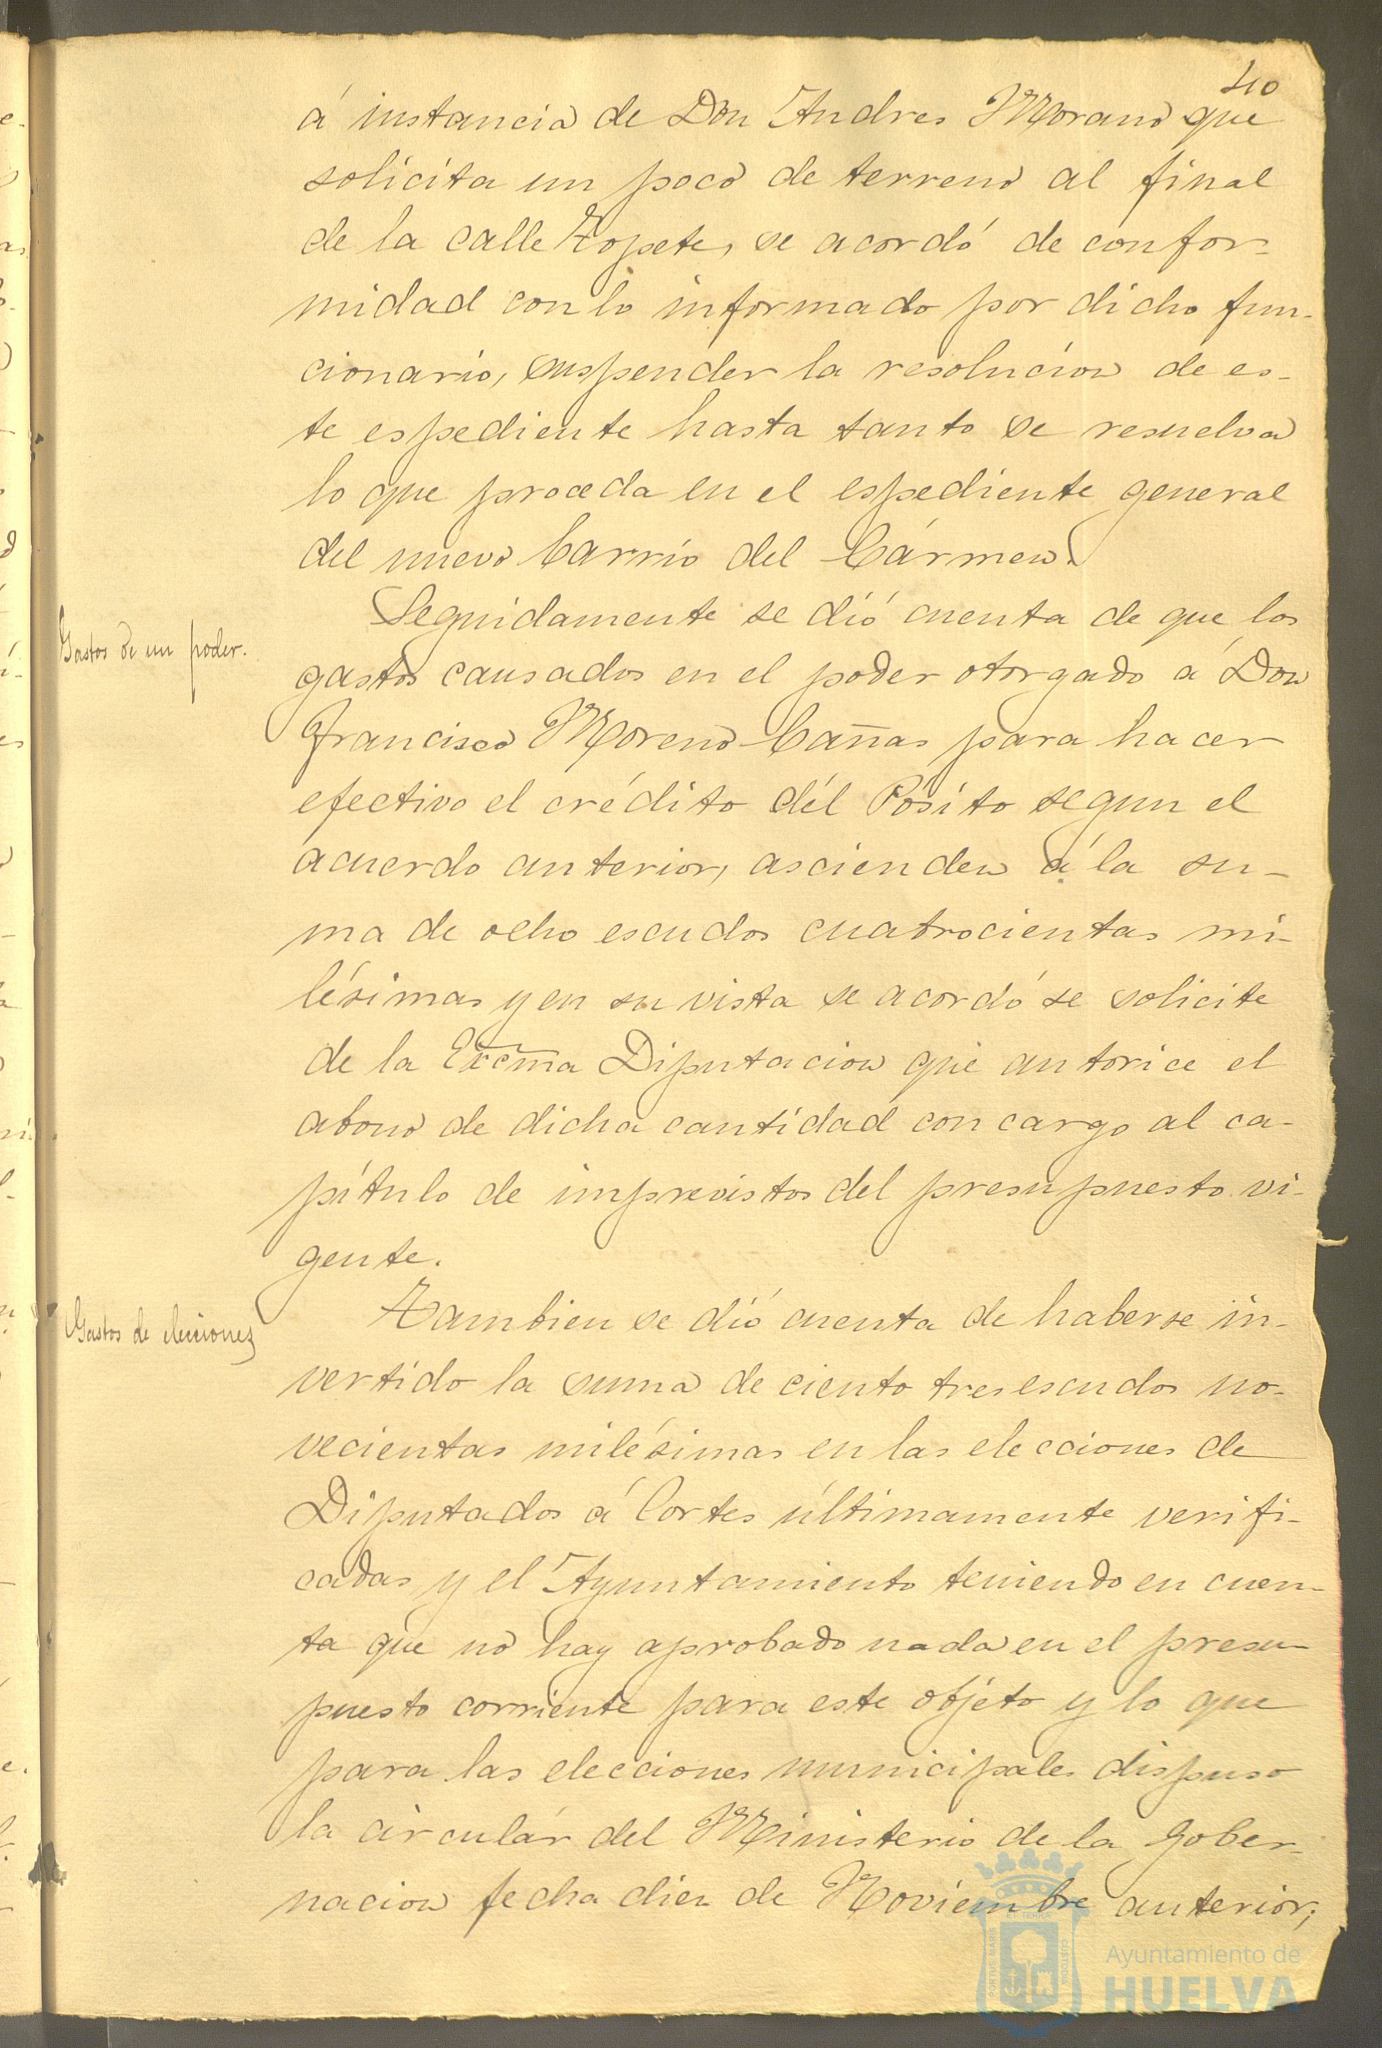 40
á instancia de Don Andres Morano que
solicita un poco de terreno al final
de la calle Topete, se acordó de confor-
midad con lo informado por dicho fun-
cionario, suspender la resolucion de es-
te espediente hasta tanto se resuelva
lo que proceda en el espediente general
del nuevo barrio del Cármen.
Gastos de un poder.
Seguidamente se dió cuenta de que los
gastos causados en el poder otorgado á Don
Francisco Moreno Cañas para hacer
efectivo el crédito del Pósito segun el
acuerdo anterior, ascienden á la su-
ma de ocho escudos cuatrocientas mi-
lésimas y en su vista se acordó se solicite
de la Excma Diputacion que autorice el
abono de dicha cantidad con cargo al ca-
pítulo de imprevistos del presupuesto vi-
gente.
Gastos de elecciones
Tambien se dió cuenta de haberse in-
vertido la suma de ciento tres escudos no-
vecientas milésimas en las elecciones de
Diputados á Cortes últimamente verifi-
cadas y el Ayuntamiento teniendo en cuen-
ta que no hay aprobado nada en el presu-
puesto corriente para este objeto y lo que
para las elecciones municipales dispuso
la circular del Ministerio de la Gober-
nacion fecha diez de Noviembre anterior;
Ayuntamiento de
HUELVA